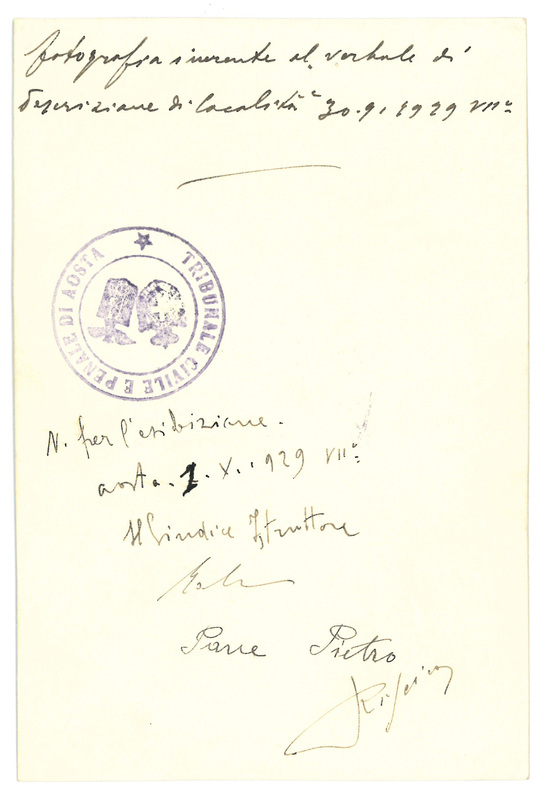 fotografia inerente al verbale di
descrizione di località 30.9.1929 VII°
TRIBUNALE CIVILE E PENALE DI AOSTA
V. per l'esibizione.
aosta. 1. X. 1929 VII°
Il Giudice Istruttore
Pietro